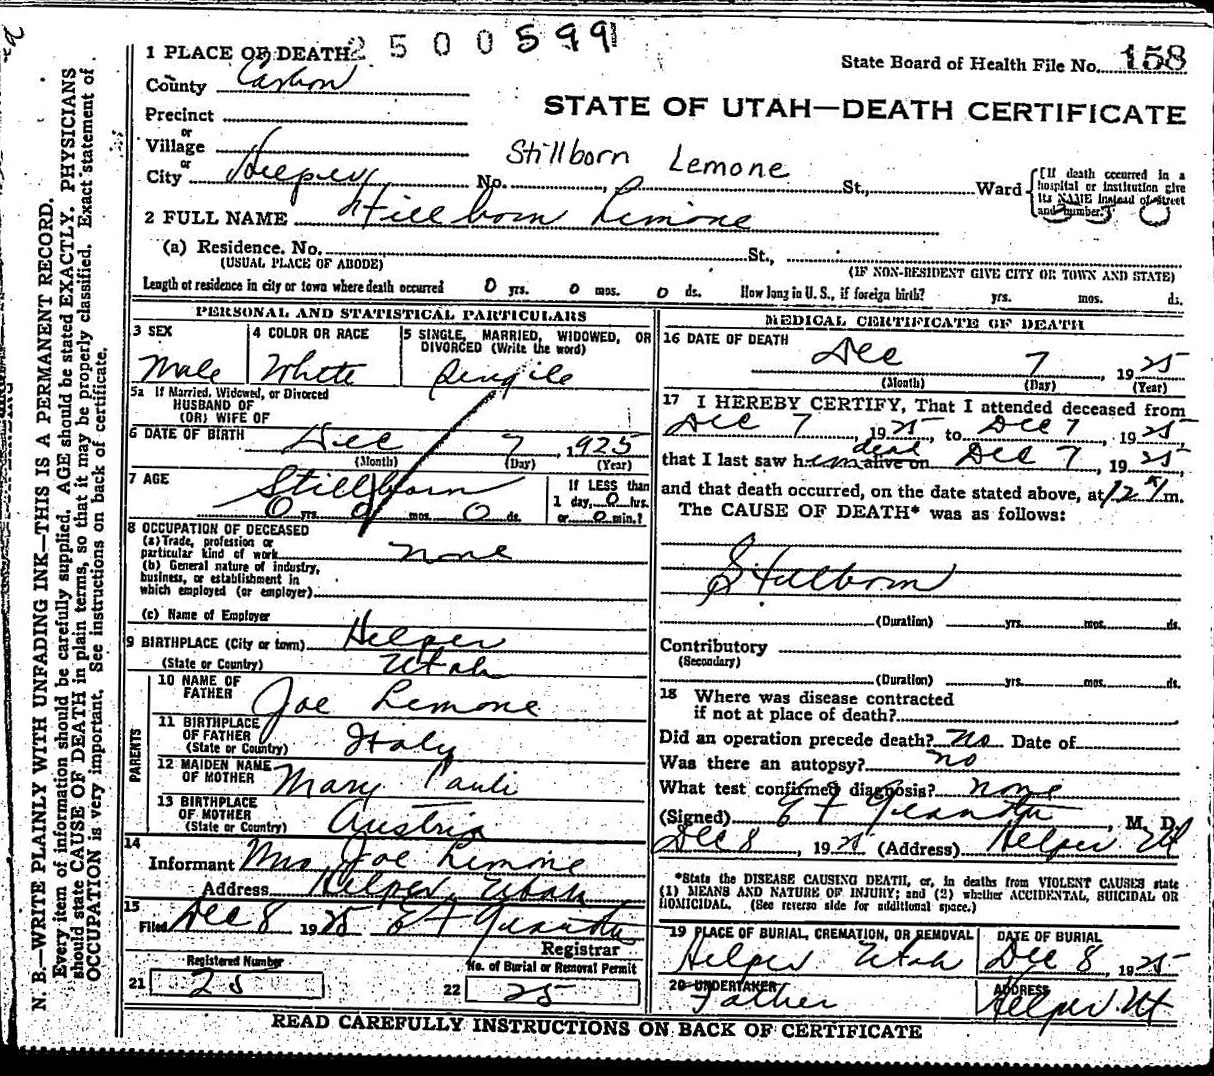 2500599
1 PLACE OF DEATH
State Board of Health File No. 158
County Carbon
STATE OF UTAH—DEATH CERTIFICATE
Precinct
or
Village
or
Stillborn Lemone
City Helper No. St., Ward
[If death occurred in a
hospital or institution give
its NAME instead of street
and number.]
2 FULL NAME Stillborn Lemone
(a) Residence. No. St.,
(USUAL PLACE OF ABODE) (IF NON-RESIDENT GIVE CITY OR TOWN AND STATE)
Length of residence in city or town where death occurred 0 yrs. 0 mos. 0 ds. How long in U.S., if foreign birth? yrs. mos. ds.
PERSONAL AND STATISTICAL PARTICULARS
3 SEX
Male
4 COLOR OR RACE
White
5 SINGLE, MARRIED, WIDOWED, OR
DIVORCED (Write the word)
5a If Married, Widowed, or Divorced
HUSBAND OF
(OR) WIFE OF
6 DATE OF BIRTH Dec 7, 1925
(Month) (Day) (Year)
7 AGE Stillborn
0 yrs. 0 mos. 0 ds.
If LESS than
1 day, 0 hrs.
or 0 min.?
8 OCCUPATION OF DECEASED
(a) Trade, profession or
particular kind of work none
(b) General nature of industry,
business, or establishment in
which employed (or employer)
(c) Name of Employer
9 BIRTHPLACE (City or town) Helper
(State or Country) Utah
PARENTS
10 NAME OF
FATHER Joe Lemone
11 BIRTHPLACE
OF FATHER
(State or Country) Italy
12 MAIDEN NAME
OF MOTHER Mary Pauli
13 BIRTHPLACE
OF MOTHER
(State or Country) Austria
14
Informant Mrs Joe Lemone
Address Helper, Utah
15
Filed Dec 8 1925 E F
Registrar
Registered Number
21 25
No. of Burial or Removal Permit
22 25
MEDICAL CERTIFICATE OF DEATH
16 DATE OF DEATH
Dec 7, 1925
(Month) (Day) (Year)
17 I HEREBY CERTIFY, That I attended deceased from
Dec 7, 1925, to Dec 7, 1925
dead
that I last saw him alive on Dec 7, 1925,
and that death occurred, on the date stated above, at 12 m.
The CAUSE OF DEATH* was as follows:
Stillborn
(Duration) yrs. mos. ds.
Contributory
(Secondary)
(Duration) yrs. mos. ds.
18 Where was disease contracted
if not at place of death?
Did an operation precede death? No Date of
Was there an autopsy? no
What test confirmed diagnosis? none
(Signed) E F, M. D.
Dec 8, 1925 (Address) Helper Ut
*State the DISEASE CAUSING DEATH, or, in deaths from VIOLENT CAUSES state
(1) MEANS AND NATURE OF INJURY; and (2) whether ACCIDENTAL, SUICIDAL OR
HOMICIDAL. (See reverse side for additional space.)
19 PLACE OF BURIAL, CREMATION, OR REMOVAL
Helper Utah
DATE OF BURIAL
Dec 8, 1925
20 UNDERTAKER
Father
ADDRESS
Helper Ut
READ CAREFULLY INSTRUCTIONS ON BACK OF CERTIFICATE
N. B.—WRITE PLAINLY WITH UNFADING INK—THIS IS A PERMANENT RECORD.
Every item of information should be carefully supplied. AGE should be stated EXACTLY. PHYSICIANS
should state CAUSE OF DEATH in plain terms, so that it may be properly classified. Exact statement of
OCCUPATION is very important. See instructions on back of certificate.